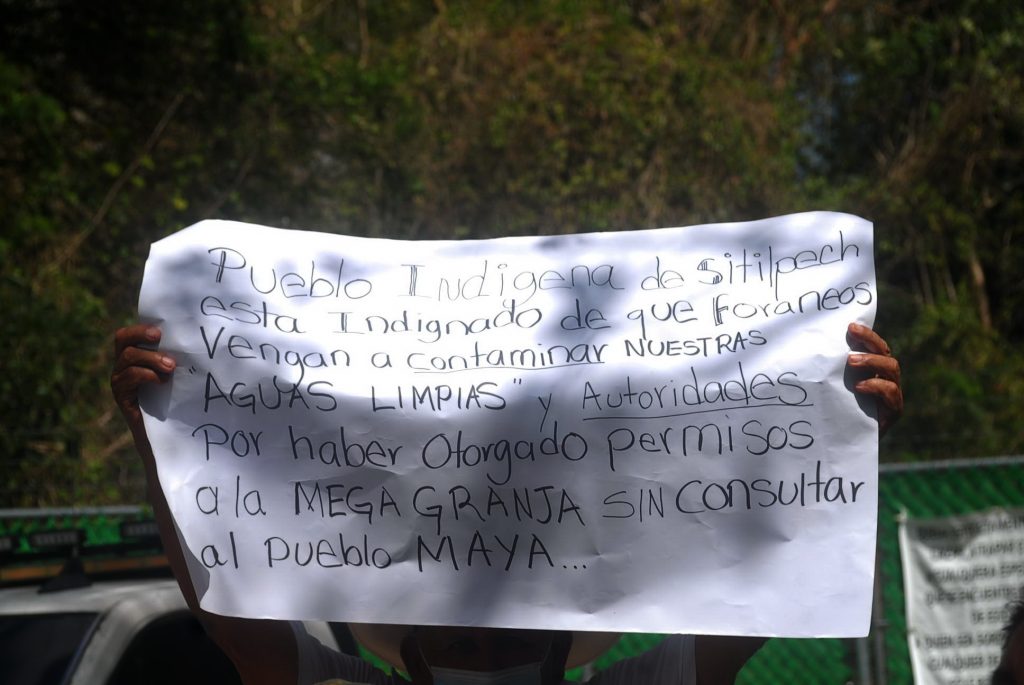 Pueblo Indigena de Sitilpech
esta Indignado de que Foraneos
Vengan a contaminar NUESTRAS
"AGUAS LIMPIAS" y Autoridades
Por haber Otorgado permisos
a la MEGA GRANJA SIN Consultar
al Pueblo MAYA...